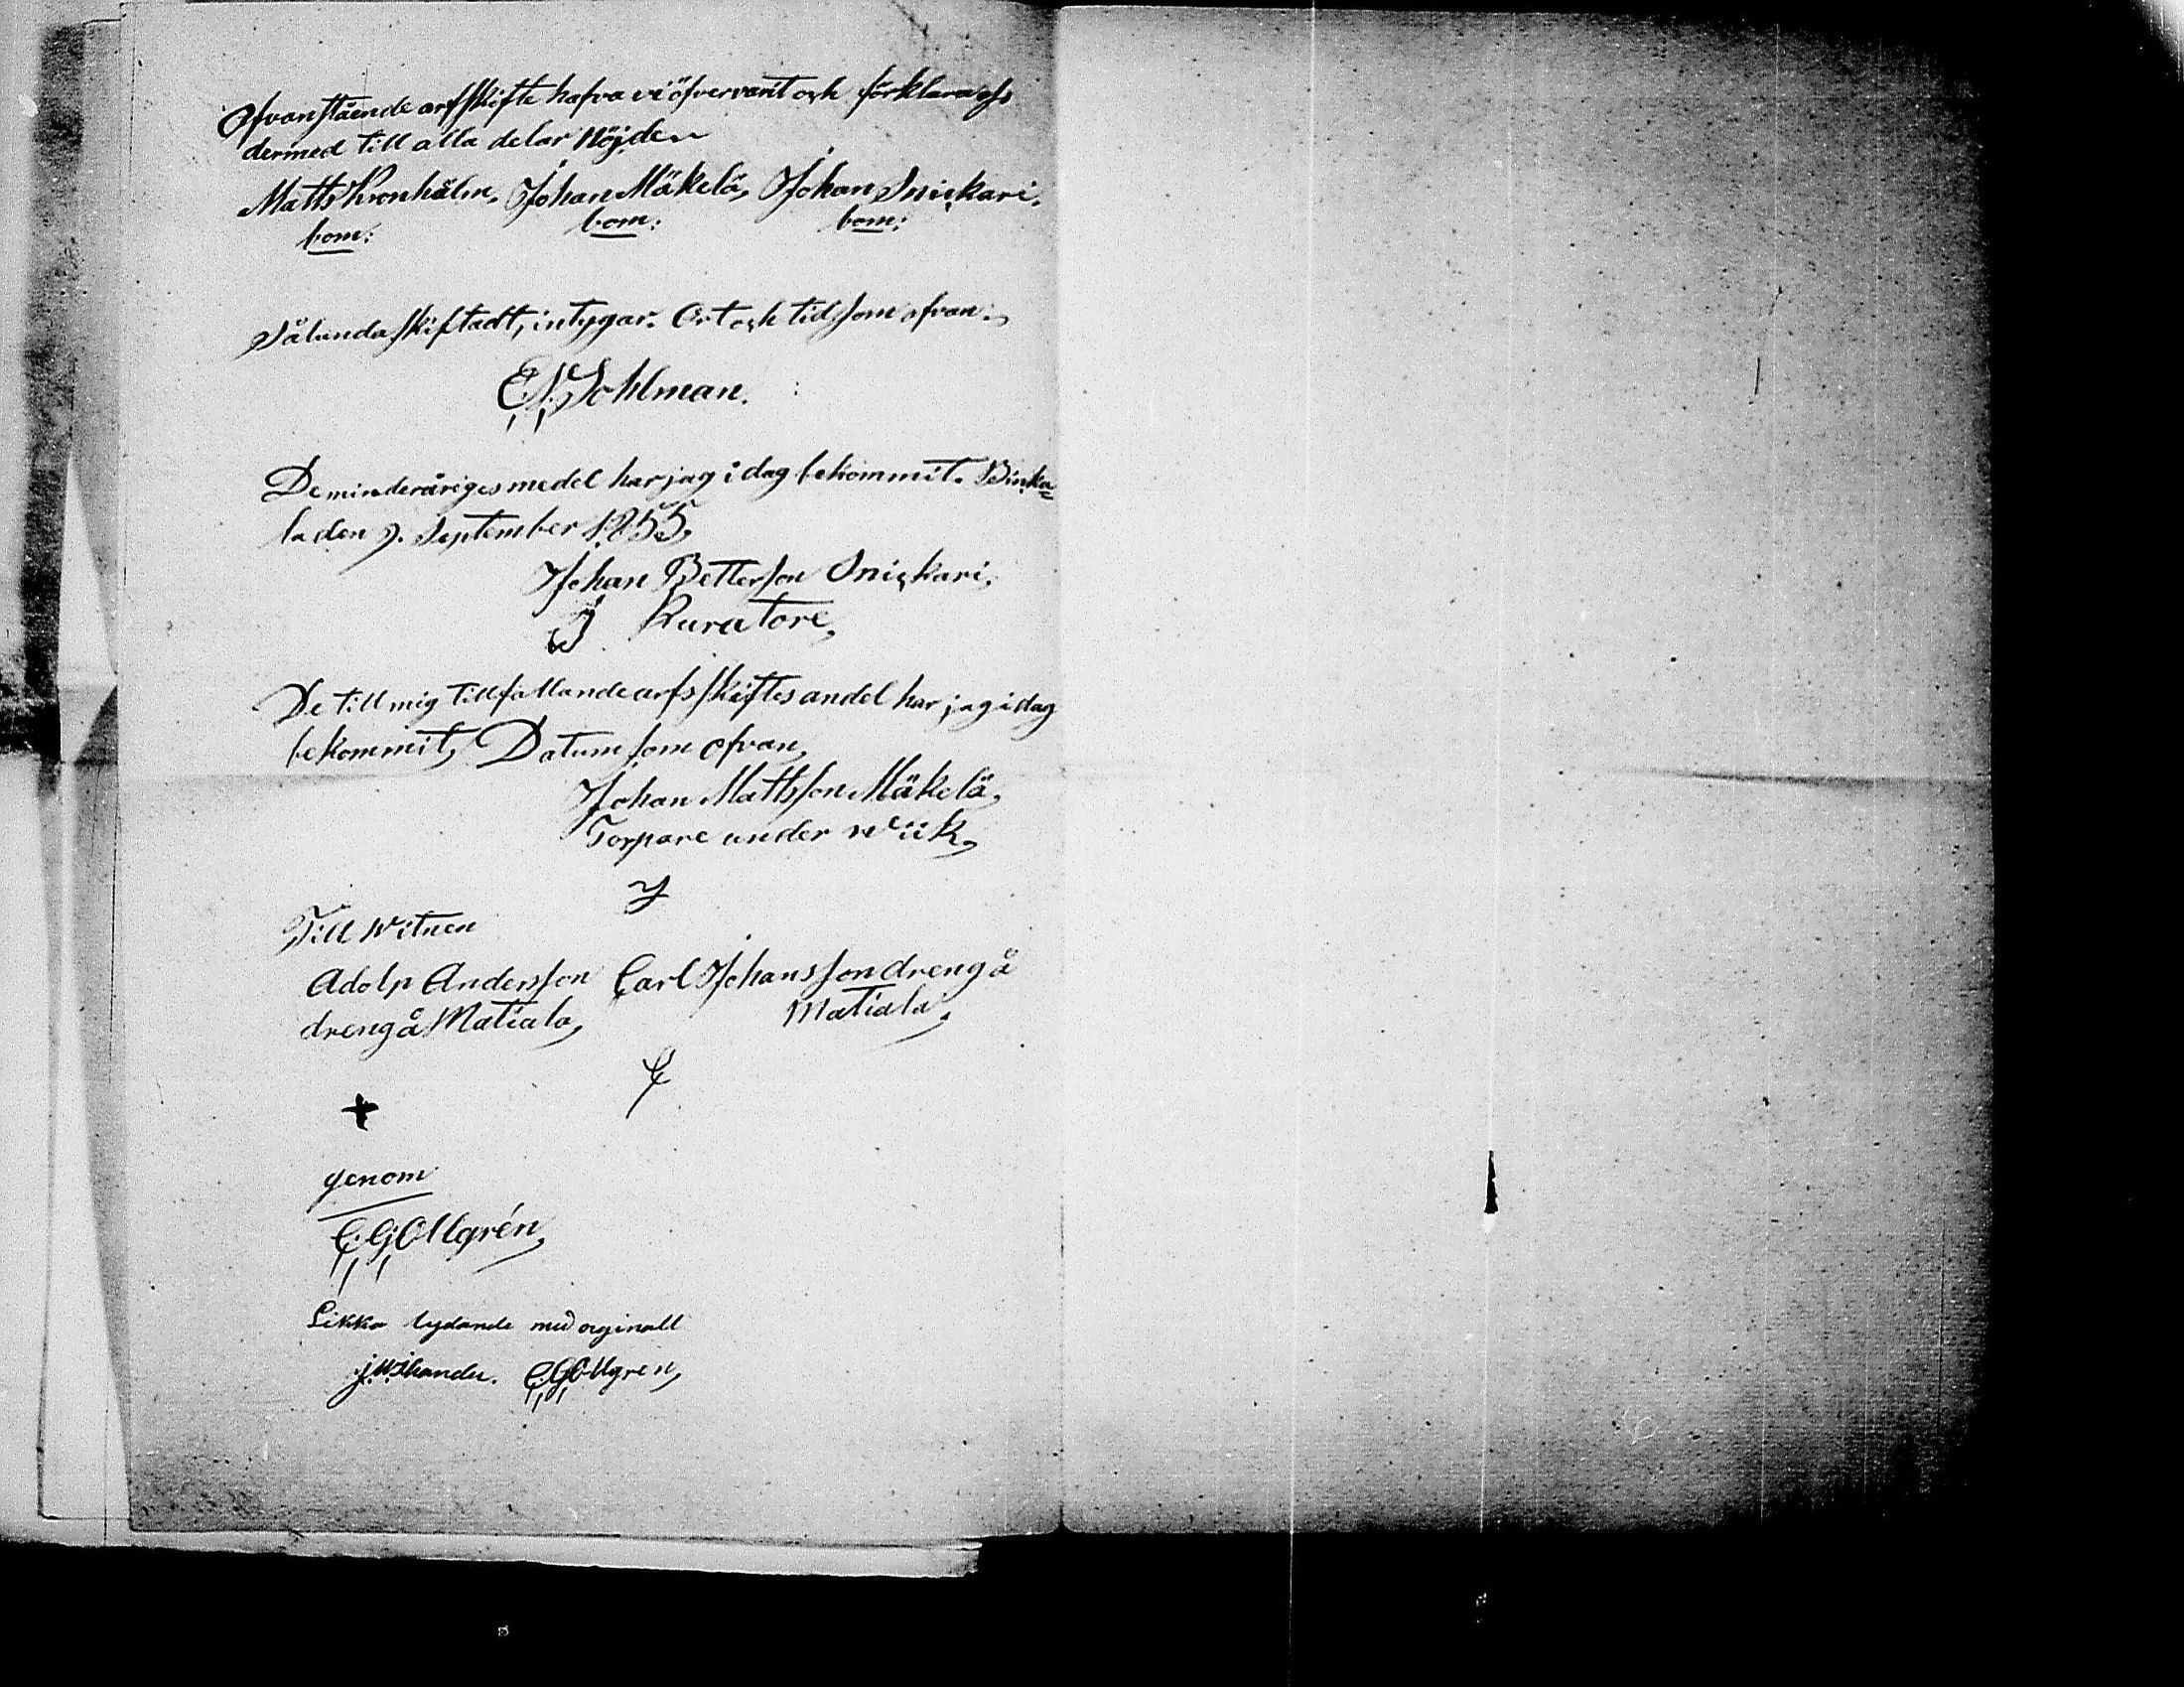 Ofvanstående arfskifte hafva vi öfvervarit och förklara oss
dermed till alla delar Nöjden
Matts Kronholm, Johan Mäkelä, Johan Snickari.
bom: bom: bom:
Sålunda skiftadt, intygar. Ort och tid som ofvan.
E. J. Sohlman.
De minderåriges medel har jag i dag bekommit. Binka=
la den 9. September 1855,
Johan Petterson Snickari,
Kuratore,
De till mig tillfallande arfsskiftes andel har jag i dag
bekommit, Datum som ofvan,
Johan Mattsson Mäkelä,
Torpare under wiik,
Till Witnen
Adolp Andersson Carl Johansson dreng å
dreng å Matiala, Matiala,
genom
C. G. Ollgrén,
Likka lydande med orginall
C. G. Ollgren,